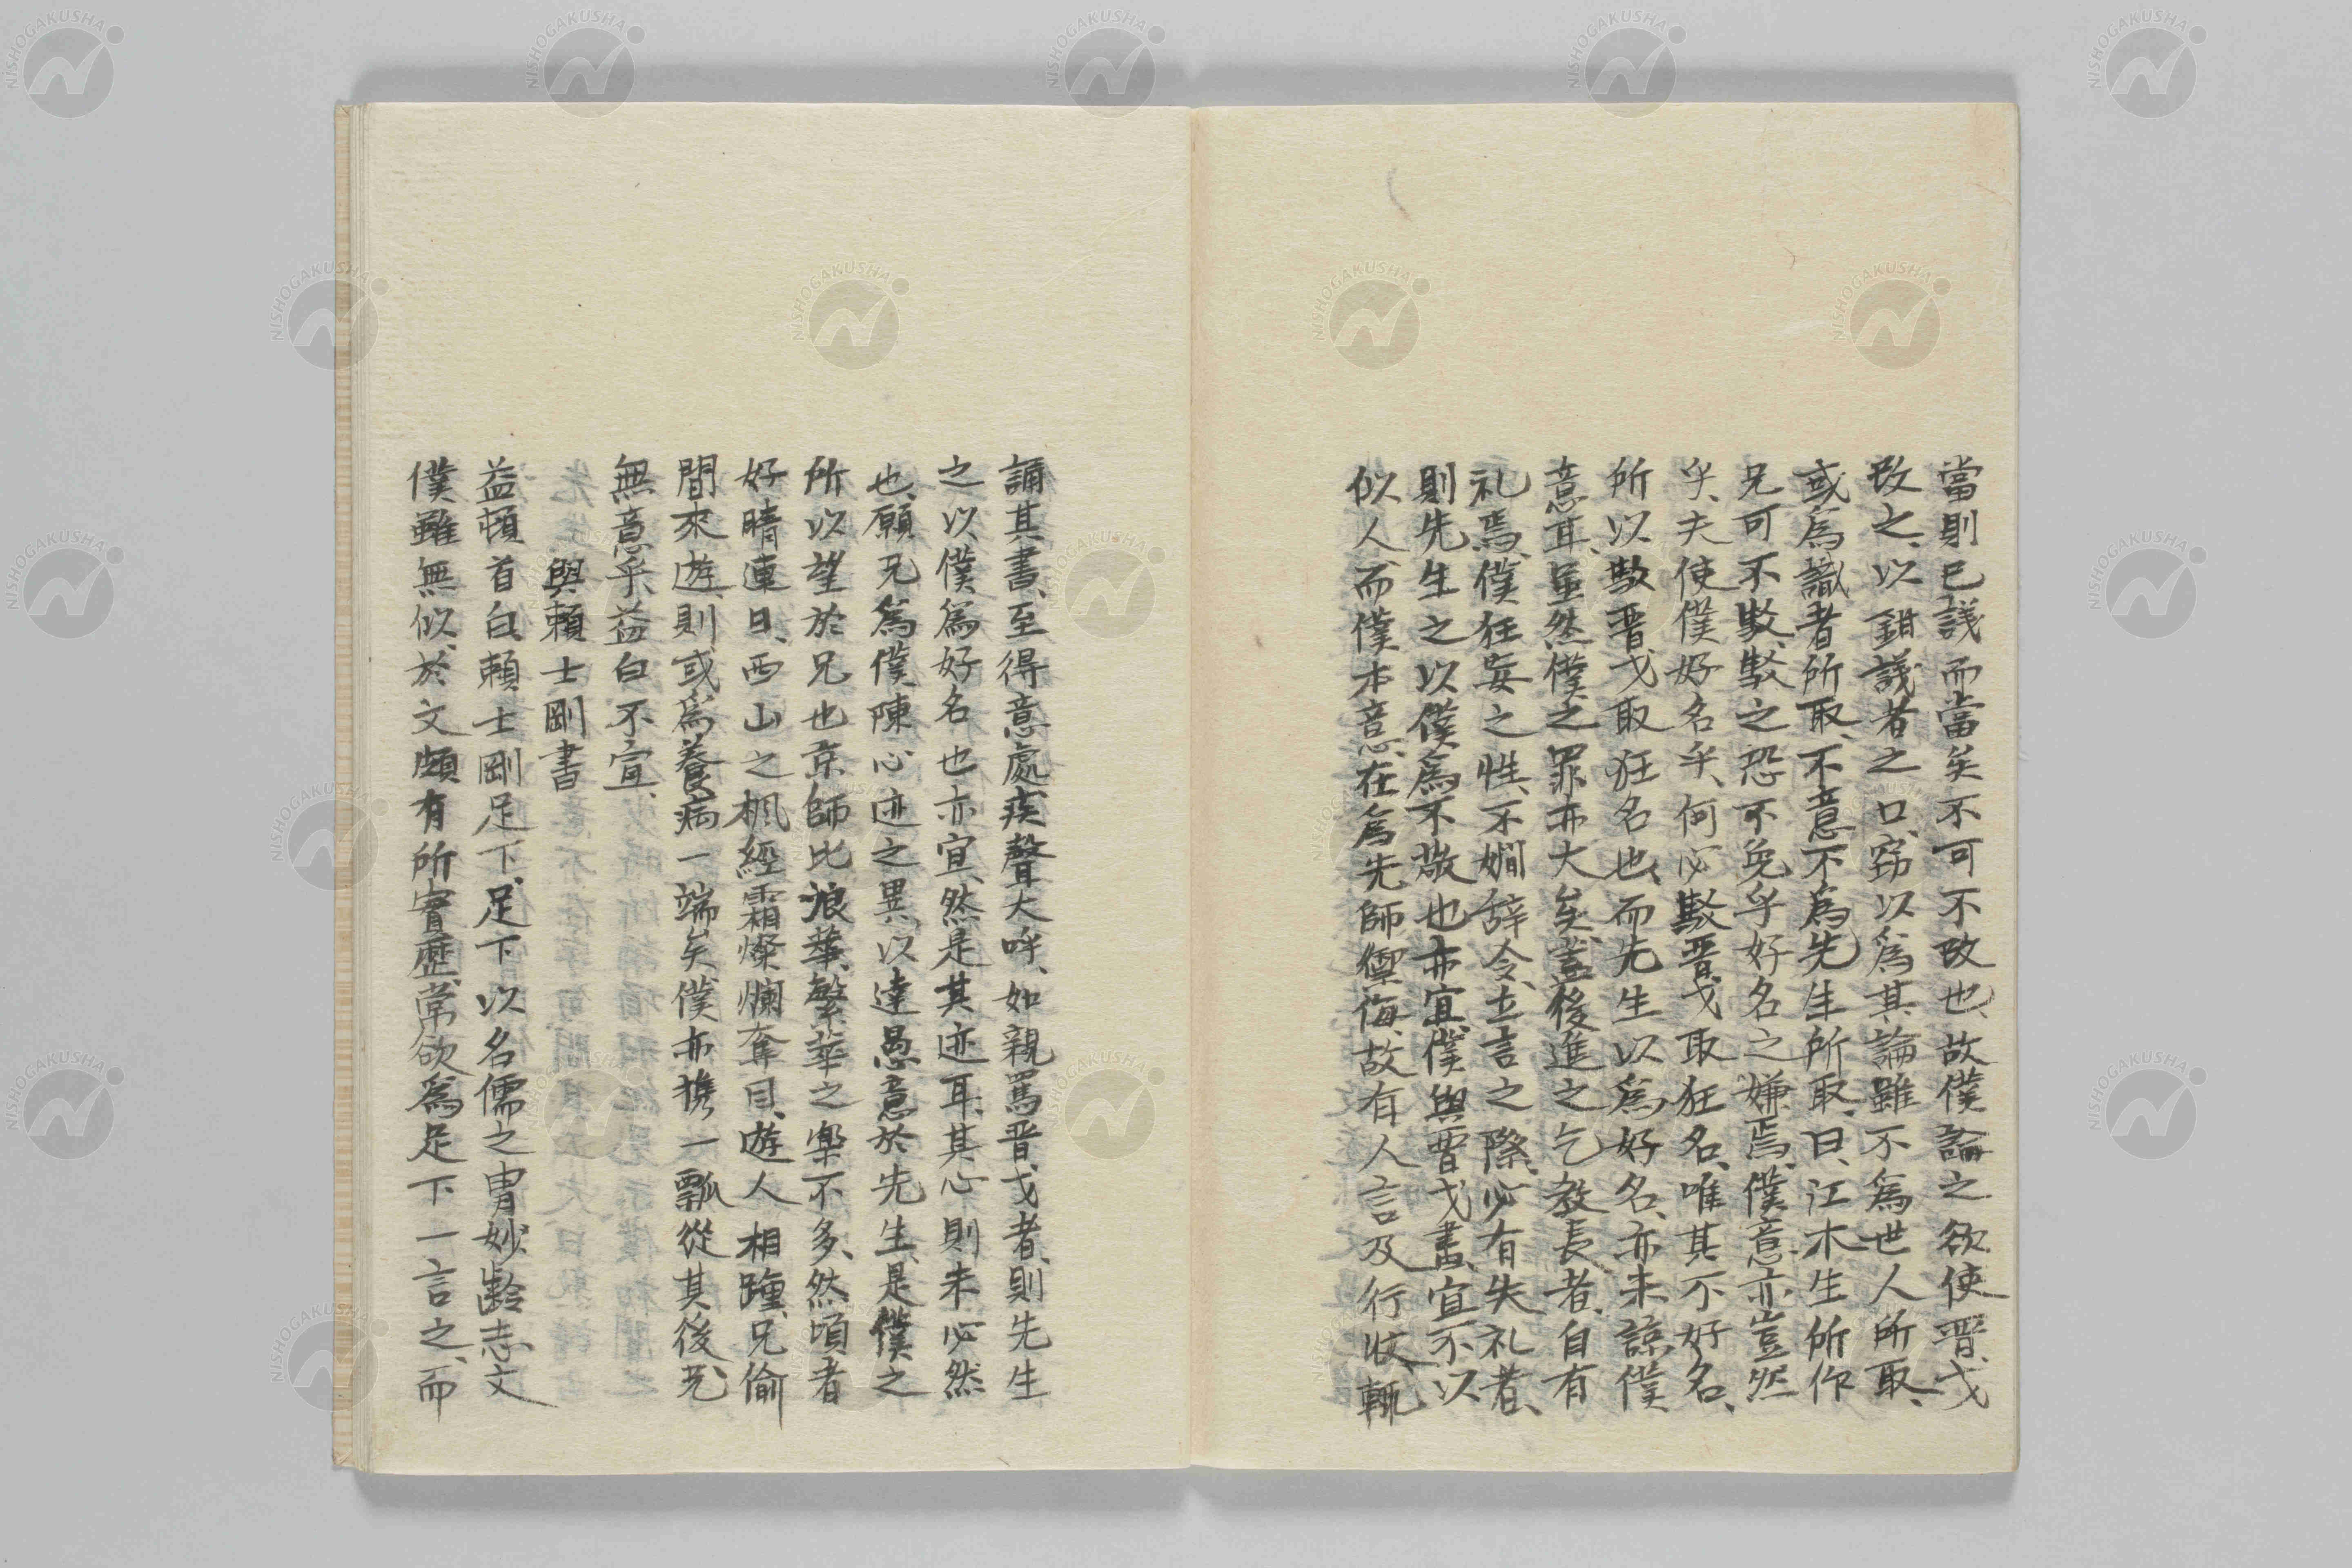 當則已議而當矣不可不改也、故僕論之欲使晋戈
改之、以鉗議者之口、窃以爲其論雖不爲世人所取、
或爲識者所取、不意不爲先生所取、曰、江木生所作
兄可不駁、駁之恐不免乎好名之嫌焉、僕意亦豈然
乎、夫使僕好名乎、何必駁晋戈取狂名、唯其不好名、
所以駁晋戈取狂名也、而先生以爲好名、亦未諒僕
意耳、虽然僕之罪亦大矣、蓋後進之乞教長者、自有
礼焉、僕狂妄之性、不嫺辞令、立言之際、必有失礼者、
則先生之以僕爲不敬也亦宜、僕與晋戈書、宜不以
似人、而僕本意、在爲先師禦侮、故有人言及行状、輒
誦其書、至得意處、疾聲大呼、如親罵晋戈者、則先生
之以僕爲好名也亦宜、然是其迹耳、其心則未必然
也、願兄爲僕陳心迹之異、以達愚意於先生、是僕之
所以望於兄也京師比浪華、繁華之樂不多、然頃者
好晴連日、西山之楓經霜燦爛奪目、遊人相踵、兄偷
間來遊、則或爲養病一端矣、僕亦携一瓢從其後、兄
無意乎、益白不宣、
與頼士剛書
益頓首白、頼士剛足下、足下以名儒之冑妙齢志文
僕雖無似、於文頗有所實歷、常欲爲足下一言之、而
NISHOGAKUSHA